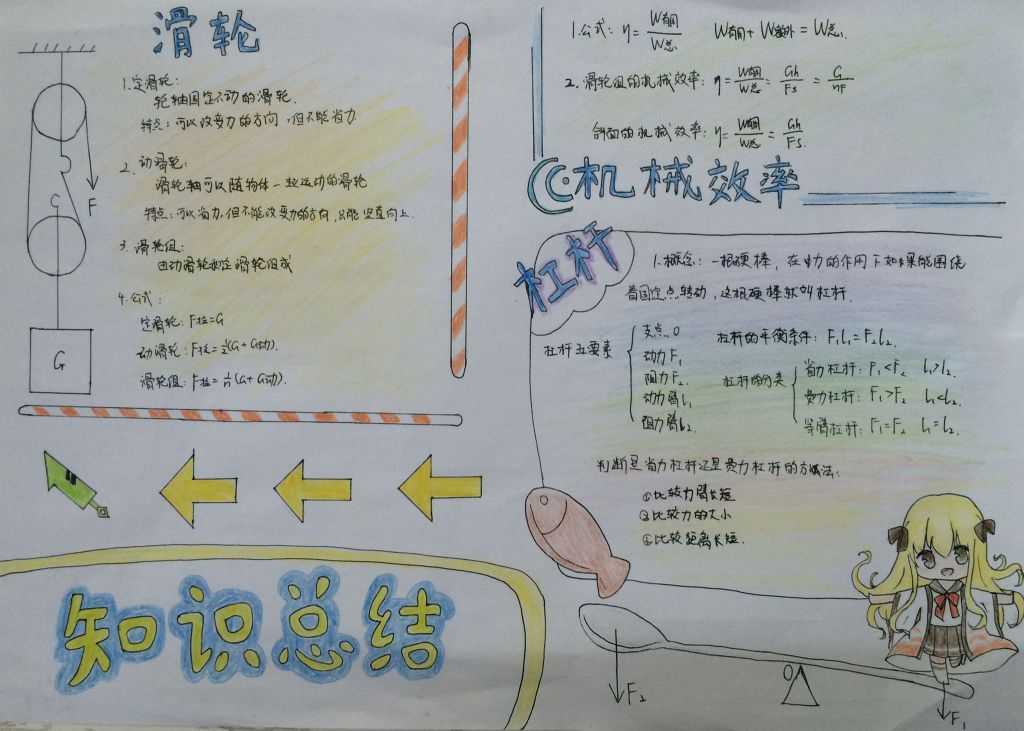 滑轮
1.定滑轮:
轮轴固定不动的滑轮.
特点:可以改变力的方向,但不能省力
2.动滑轮:
滑轮轴可以随物体一起运动的滑轮
特点:可以省力,但不能改变力的方向,只能竖直向上.
3.滑轮组:
由动滑轮和定滑轮组成
4.公式:
定滑轮:F拉=G
动滑轮:F拉=½(G+G动).
滑轮组:F拉=1/n(G+G动).
F
G
知识总结
1.公式:η=W有用/W总 W有用+W额外=W总.
2.滑轮组的机械效率:η=W有用/W总=Gh/Fs=G/nF
斜面的机械效率:η=W有用/W总=Gh/Fs.
机械效率
杠杆
1.概念:一根硬棒,在力的作用下如果能围绕
着固定点转动,这根硬棒就叫杠杆.
杠杆五要素
支点O
动力F₁
阻力F₂
动力臂L₁
阻力臂L₂
杠杆的平衡条件:F₁L₁=F₂L₂
杠杆的分类
省力杠杆:F₁<F₂ L₁>L₂.
费力杠杆:F₁>F₂ L₁<L₂.
等臂杠杆:F₁=F₂ L₁=L₂.
判断是省力杠杆还是费力杠杆的方法:
①比较力臂长短
②比较力的大小
③比较距离长短.
F₂
O
F₁